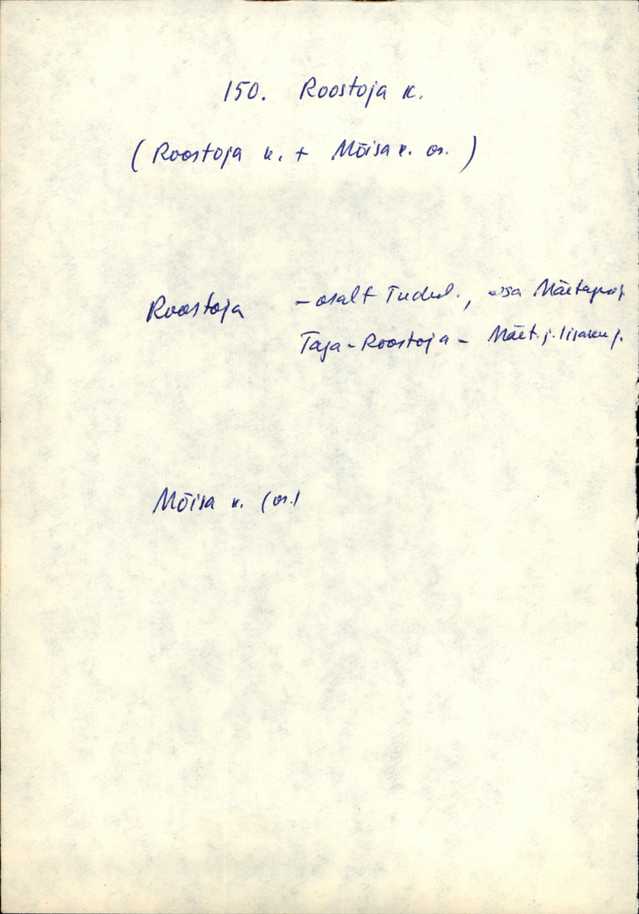 150. Roostoja k.
(Roostoja k. + Mõisa k. os.)
Roostoja - osalt Tudul., osa Mäetagus j.
Taga-Roostoja - Mäet. j. Iisaku j.
Mõisa k. (os.)